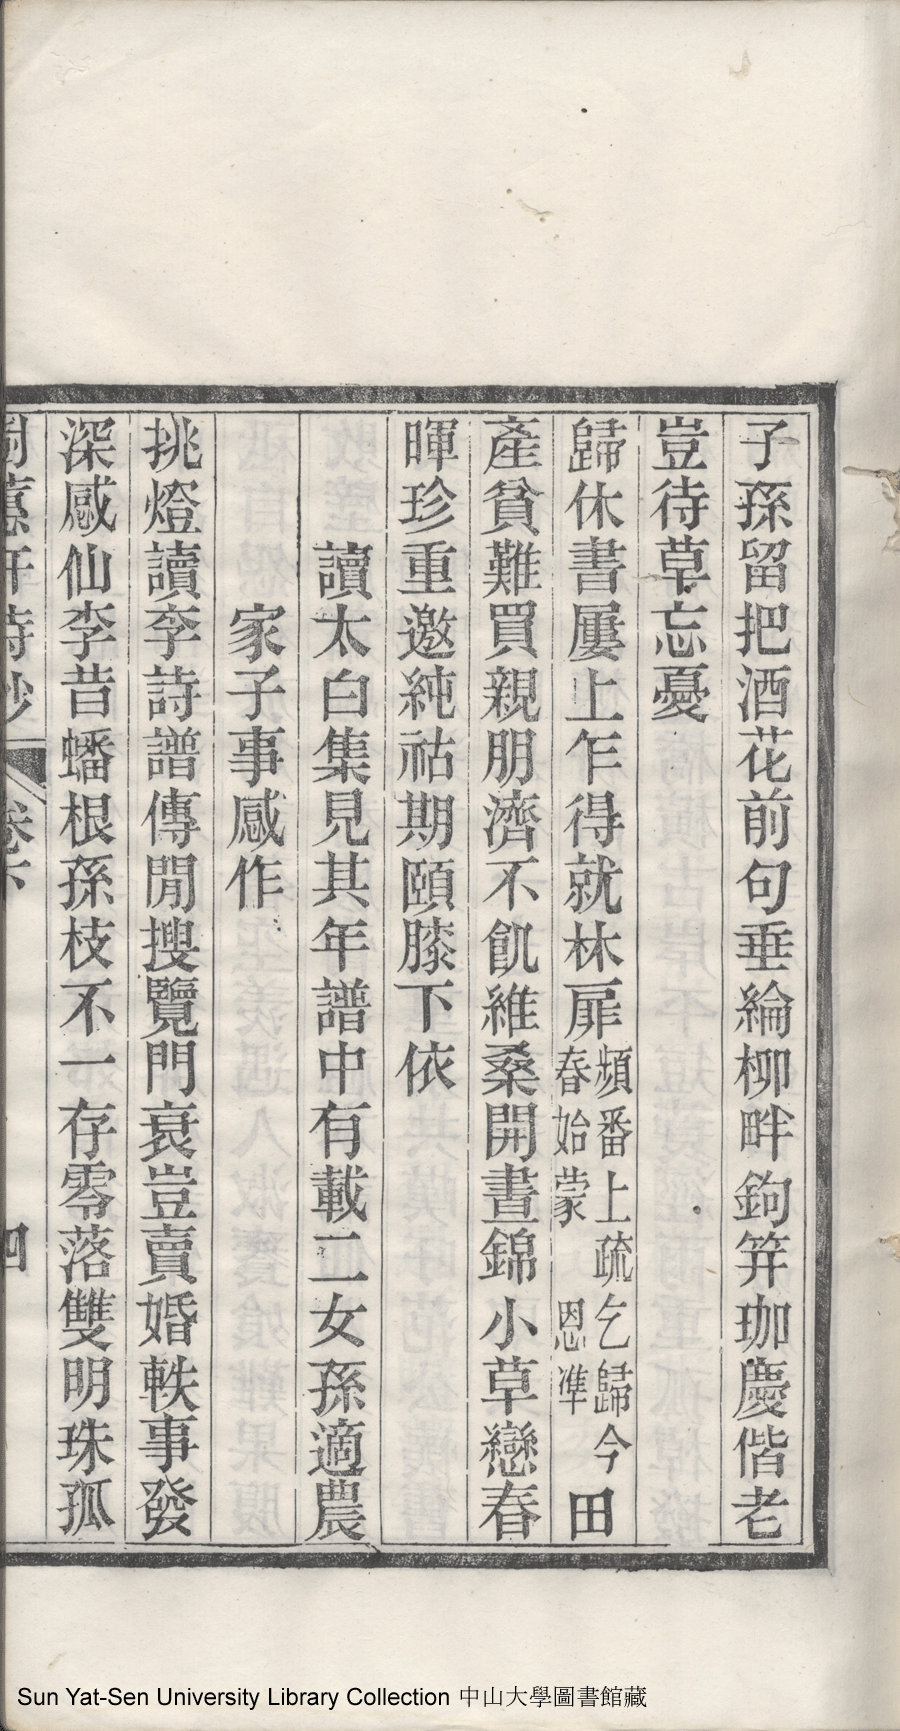 子孫留把酒花前句垂綸柳畔鉤笄珈慶偕老
豈待草忘憂
歸休書屢上乍得就林扉頻番上疏乞歸今春始蒙恩準田
產貧難買親朋濟不飢維桑開晝錦小草戀春
暉珍重邀純祜期頤膝下依
讀太白集見其年譜中有載二女孫適農
家子事感作
挑燈讀李詩譜傳閒搜覽門衰豈賣婚軼事發
深感仙李昔蟠根孫枝不一存零落雙明珠孤
卷下
四
Sun Yat-Sen University Library Collection 中山大學圖書館藏